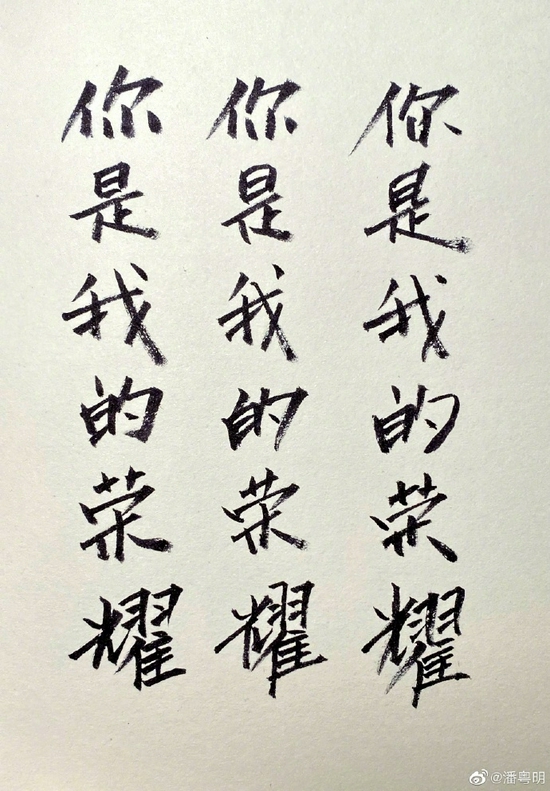 你是我的荣耀
你是我的荣耀
你是我的荣耀
@潘粤明